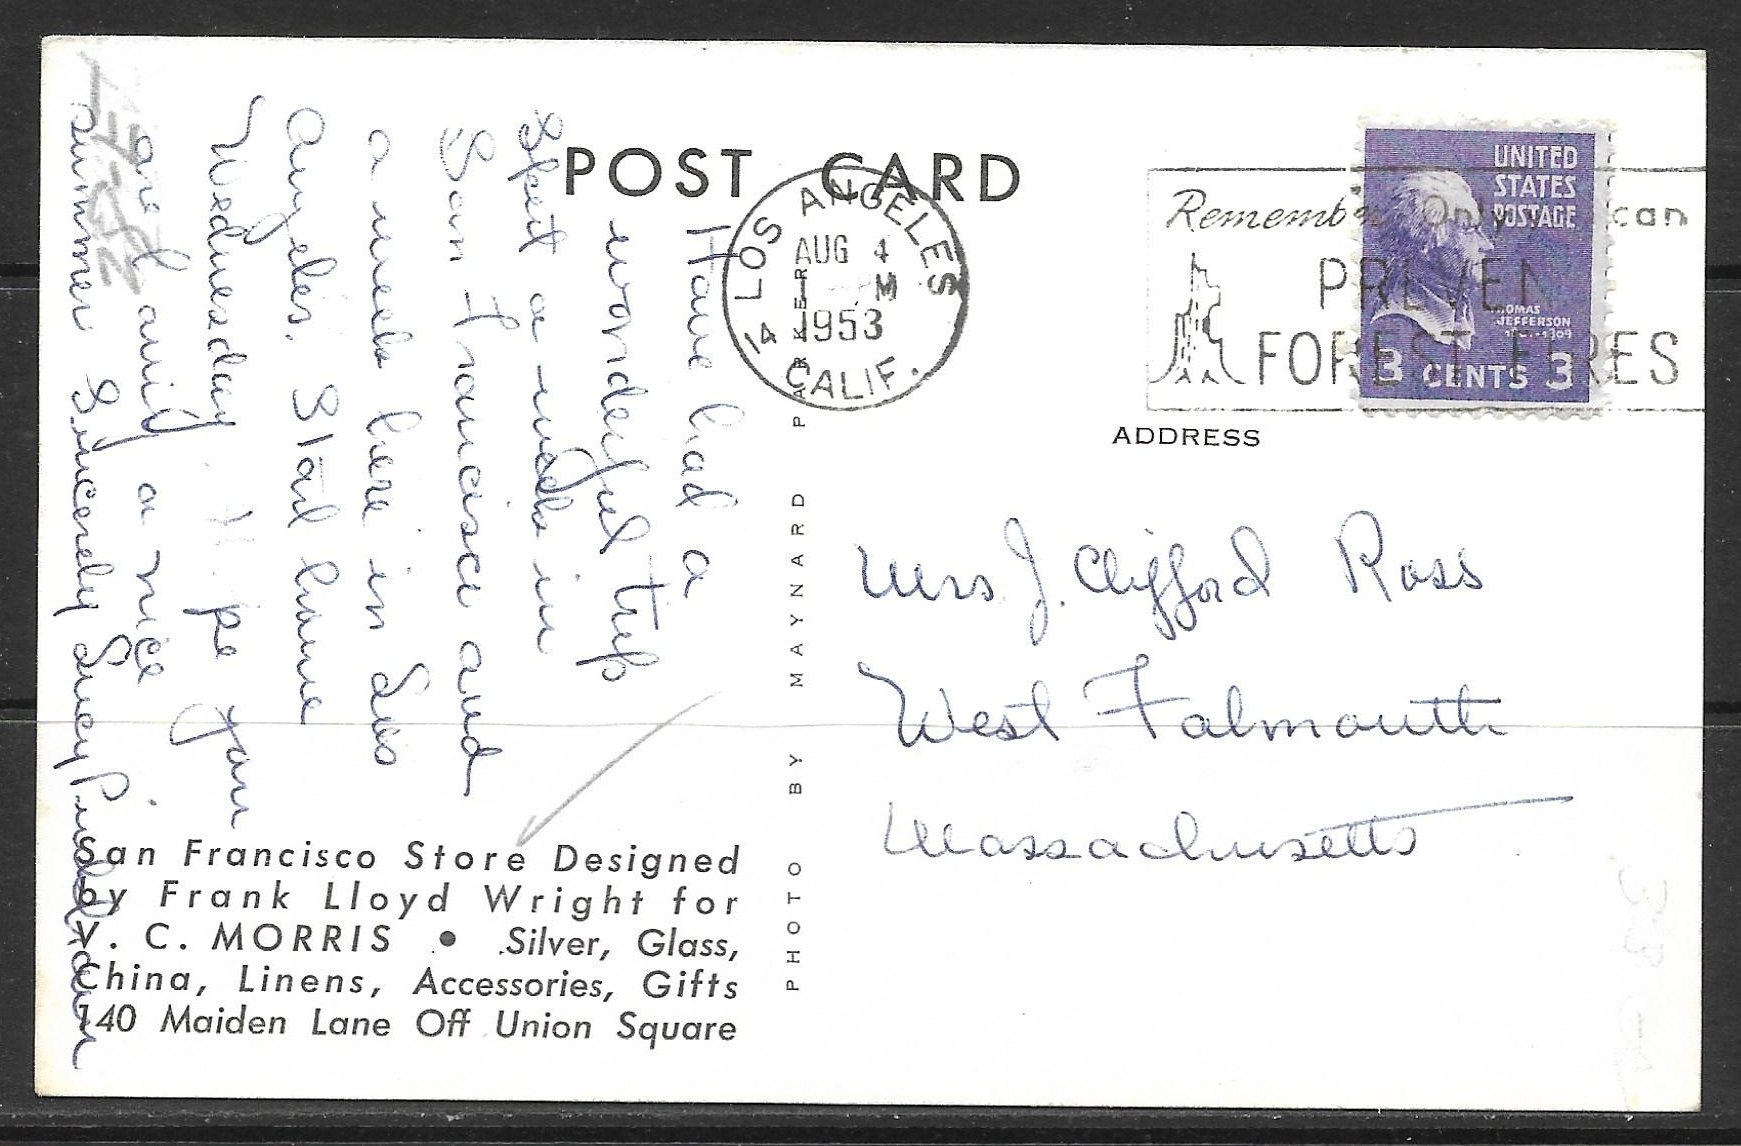 POST CARD
LOS ANGELES
14
AUG 4
1 PM
1953
CALIF.
Remember Only can
PREVENT
FOREST FIRES
UNITED
STATES
POSTAGE
THOMAS
JEFFERSON
3 CENTS 3
ADDRESS
Mrs J. Clifford Ross
West Falmouth
Massachusetts
Have had a
wonderful trip
Spent a week in
San Francisco and
a week here in Los
Angeles. Start home
Wednesday. Hope you
are having a nice
summer Sincerely Lucy
PHOTO BY MAYNARD PARKER
San Francisco Store Designed
by Frank Lloyd Wright for
V. C. MORRIS • Silver, Glass,
China, Linens, Accessories, Gifts
140 Maiden Lane Off Union Square